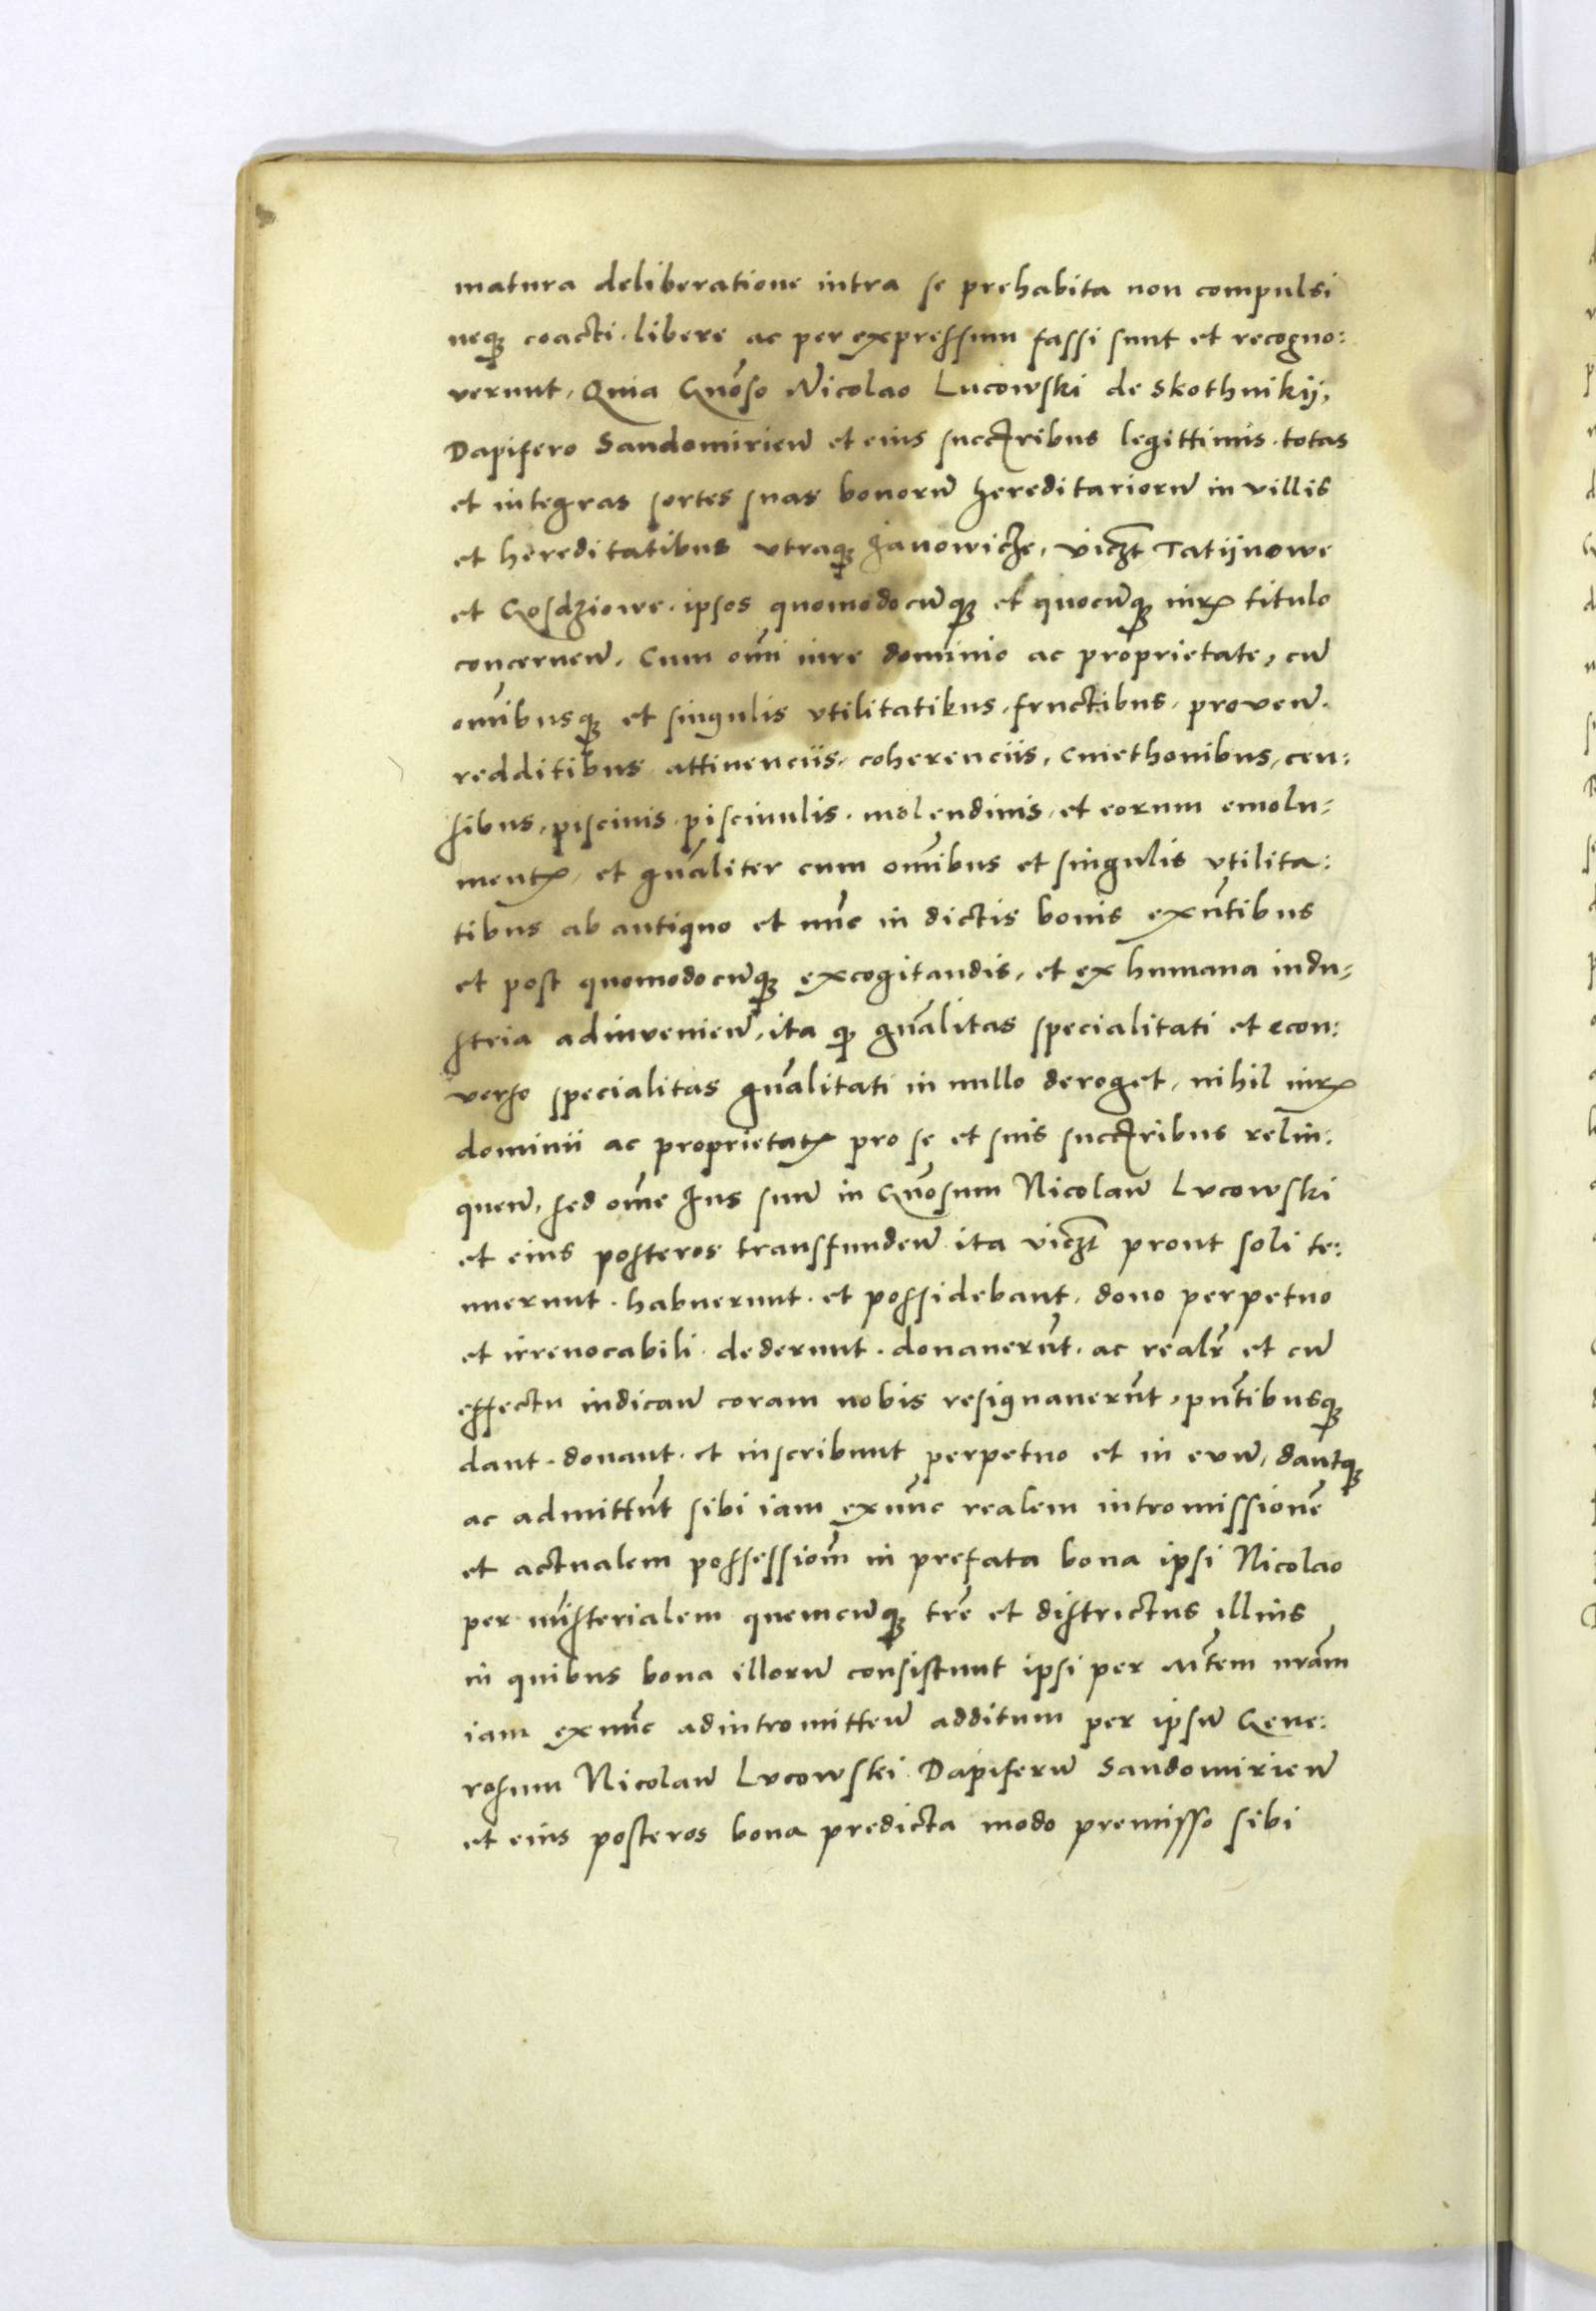 matura deliberatione intra se prehabita non compulsi
neqꝫ coacti · libere ac per expressum fassi sunt et recogno:
verunt, Quia Gn̄oso Nicolao Lucowski de Skothnikij,
Dapifero Sandomirieñ et eius succ̄ribus legittimis · totas
et integras sortes suas bonorū hereditariorū in villis
et hereditatibus vtraqꝫ Janowicze, vicꝫt Tatijnowe
et Gosdziowe · ipsos quomodocūqꝫ et quocūqꝫ iurꝭ titulo
concerneñ, Cum om̄i iure dominio ac proprietate, cū
om̄ibusqꝫ et singulis vtilitatibus, fructibus, proveñ ·
redditibus attinenciis, coherenciis, Cmethonibus, cen:
sibus, piscinis · piscinulis · molendinis, et eorum emolu-
mentꝭ, et gn̄aliter cum om̄ibus et singulis vtilita:
tibus ab antiquo et nūc in dictis bonis exn̄tibus
et post quomodocūqꝫ excogitandis, et ex humana indu-
stria adinvenieñ, ita qꝫ gn̄alitas specialitati et econ:
verso specialitas gn̄alitati in nullo deroget, nihil iurꝭ
dominii ac proprietatꝭ pro se et suis succ̄ribus relin:
queñ, sed om̄e Jus suū in Gn̄osum Nicolaū Lvcowski
et eius posteros transfundeñ ita vicꝫt prout soli te:
nuerunt · habuerunt · et possidebant, dono perpetuo
et irreuocabili · dederunt · donauerūt · ac realr̄ et cū
effectu iudicañ coram nobis resignauerūt, pn̄tibusqꝫ
dant · donant · et inscribunt perpetuo et in evū, dantqꝫ
ac admittūt sibi iam exnūc realem intromissionē
et actualem possessiom̄ in prefata bona ipsi Nicolao
per ministerialem quemcūqꝫ tr̄e et districtus illius
in quibus bona illorū consistunt ipsi per Mtēm nr̄am
iam exnūc adintromitteñ additum per ipsū Gene:
rosum Nicolaū Lvcowski Dapiferū Sandomirieñ
et eius posteros bona predicta modo premisso sibi